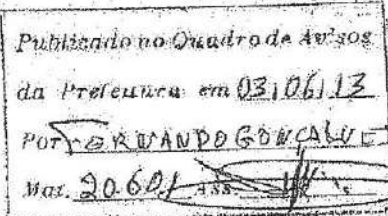 Publicado no Quadro de Avisos
da Prefeitura em 03/06/13
Por FERNANDO GONÇALVE
Mat. 20.60./ Ass.